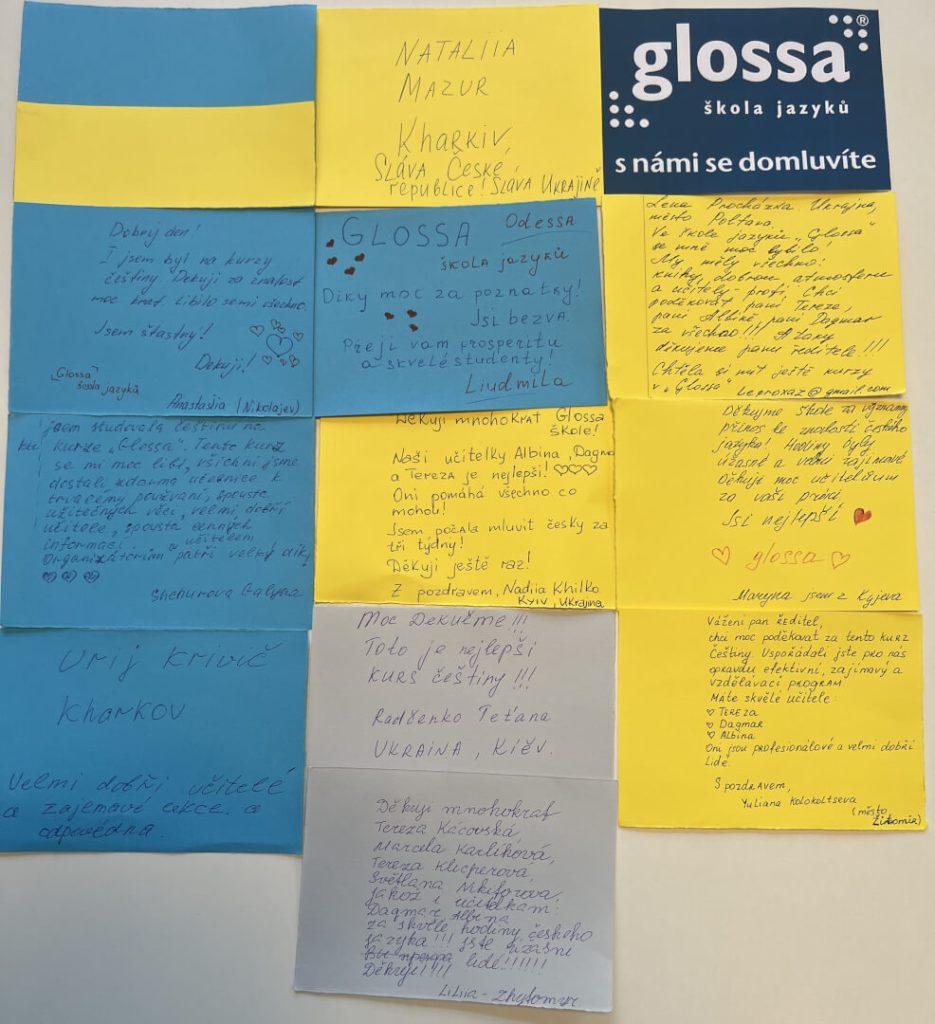 NATALIIA
MAZUR
Kharkiv,
Sláva České
republice! Sláva Ukrajině
glossa®
škola jazyků
s námi se domluvíte
Dobrij den!
I jsem byl na kurzy
češtiny. Dekuji za znalost
moc krat. Libilo semi všechno.
Jsem štastny!
Dekuji!
"Glossa"
škola jazyků
Anastasiia (Nikolajev)
GLOSSA Odessa
škola jazyků
Díky moc za poznatky!
Jsi bezva.
Preji vam prosperitu
a skvelé studenty!
Liudmila
Lena Procházna. Ukrajina,
město Poltava.
Ve škole jazyků "Glossa"
se mně moc lybilo!
My měly všechno:
knihy, dobrou atmosferu
a učitely - profi. Chci
poděkovat paní Tereze,
paní Albině, paní Dagmar
za všechno!!! A taky
děkujeme panu řediteli!!!
Chtěla si mít ještě kurzy
v "Glossa"
Leproxaz@gmail.com
jsem studovala češtinu na
kurze "Glossa". Tento kurz
se mi moc líbí, všichni jsme
dostali zdarma učebnice k
trvalemy použvaní, spousta
užitečných věcí, velmi dobří
učitele, spousta cenných
informací. učitelem
Organizátoriům patří velký díky
Shchurova Galyna
Děkuji mnohokrat Glossa
škole!
Naši učitelky Albina, Dagma
a Tereza je nejlepší!
Oni pomáhá všechno co
mohou!
Jsem počala mluvit česky za
tři týdny!
Děkuji ještě raz!
Z pozdravem, Nadiia Khilko
Kyiv, Ukrajina
Děkujme škole za významny
přínos ke znalosti českého
jazyka! Hodiny byly
úžasné a velmi zajímavé
Děkuje moc učitelium
za vaši práci
Jsi nejlepší
glossa
Maryna jsem z Kyjeva
Urij Krivič
Kharkov
Velmi dobři učitelé
a zajemavé lekce. a
odpovědna.
Moc Dekučme!!!
Toto je nejlepší
KURS češtiny!!!
Radčenko Teťana
UKRAINA, Kiěv.
Vážení pan ředitel,
chci moc poděkovat za tento kurz
Češtiny. Uspořádali jste pro nás
opravdu efektivní, zajímavý a
vzdělávací program
Máte skvělé učitele:
Tereza
Dagmar
Albina
Oni jsou profesionálové a velmi dobří
Lidé.
S pozdravem,
Yuliana Kolokoltseva
(město
Žitomir)
Děkuji mnohokrat
Tereza Kácovská,
Marcela Karlíková,
Tereza Klicperova,
Světlana Nikiforova,
jakož i učitelkam:
Dagmar, Albina
za skvělé hodiny českeho
jazyka!!! jste úžasní
lidé!!!!!!
Děkuji!!!!
Liliia - Zhytomyr